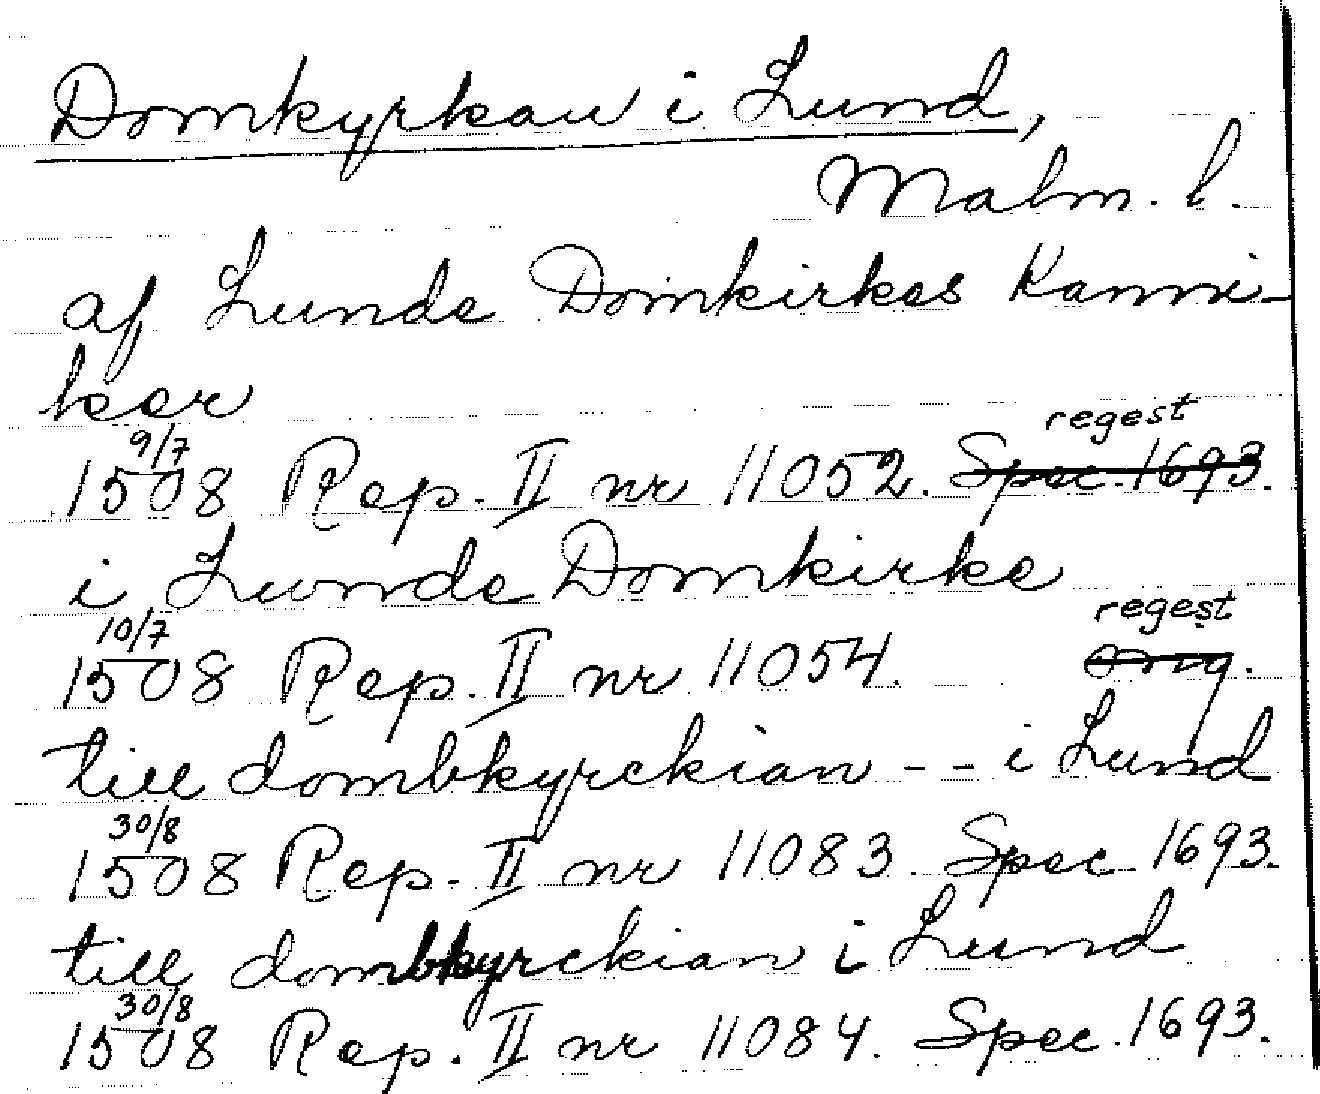 Domkyrkan i Lund,
Malm. l.
af Lunde Domkirkes Kanni-
ker
9/7 regest
1508 Rep. II nr 11052. Spec. 1693.
i Lunde Domkirke
10/7 regest
1508 Rep. II nr 11054. orig.
till dombkyrckian - - i Lund
30/8
1508 Rep. II nr 11083. Spec 1693.
till dombkyrckian i Lund
30/8
1508 Rep. II nr 11084. Spec. 1693.